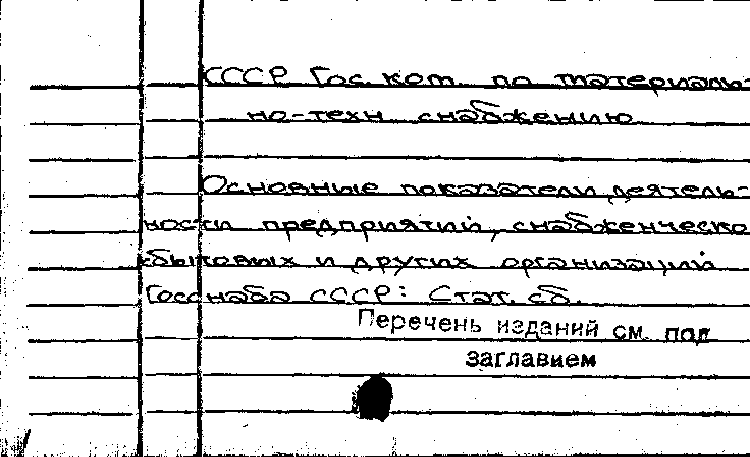 СССР Гос. ком. по материаль-
но-техн снабжению
Основные показатели деятель-
ности предприятий, снабженческо
-сбытовых и других организаций
Госснаба СССР: Стат. сб.
Перечень изданий см. под
заглавием